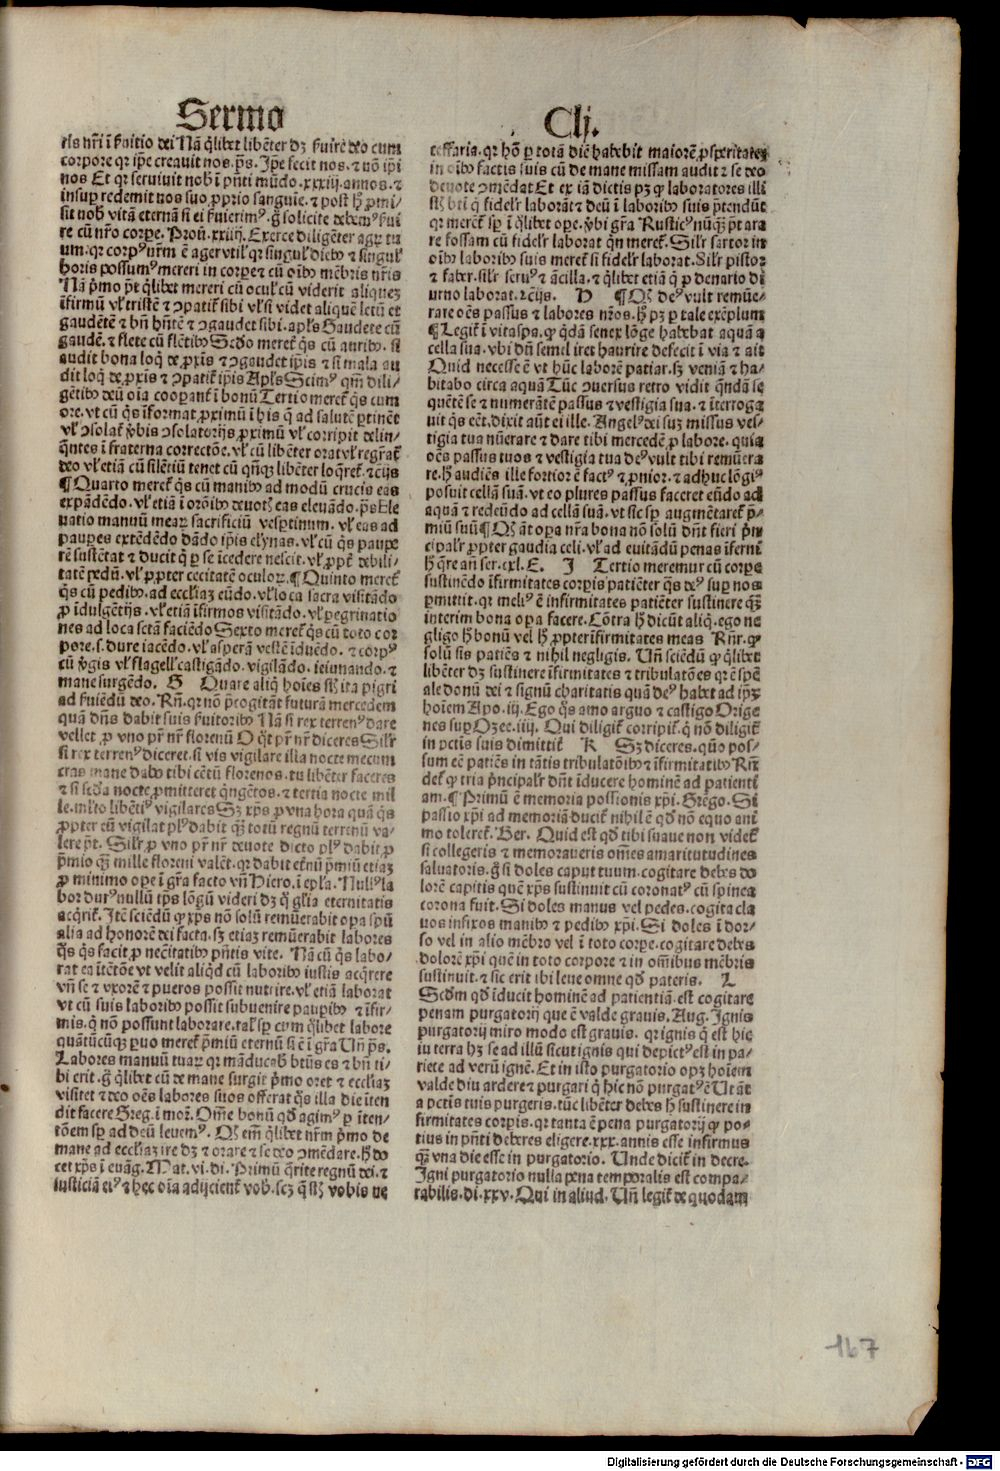 Sermo
Clj.
ris nr̄i ī ẜuitio dei Nā q̇libet libēter dꝫ ẜuire deo cum
corpore qꝛ ip̄e creauit nos. pṡ. Ip̄e fecit nos. ⁊ nō ip̄i
nos Et qꝛ seruiuit nob̄ ī pn̄ti mūdo .xxxiij. annos. ⁊
insuꝑ redemit nos suo ꝓprio sanguīe. ⁊ post h̄ ꝓmi⸗
sit nob̄ vitā eternā si ei ẜuierimꝰ. ḡ solicite debemꝰ ẜui
re cū nr̄o corꝑe. Prou. xxiiij. Exerce diligēter agꝝ tu
um. qꝛ corpꝰ nr̄m ē ager vtił qꝛ singuł dieb⁊ ⁊ singuł
horis possumꝰ mereri in corꝑe ⁊ cū oīb⁊ mēbris nr̄is
Nā pͥmo pͣt q̇libet mereri cū ocuł cū viderit aliquez
īfirmū vł tristē ⁊ ↄpatit̄ sibi vł si videt aliquē letū et
gaudētē ⁊ bn̄ hn̄tē ⁊ ↄgaudet sibi. apłs Gaudete cū
gaudē. ⁊ flete cū flētib⁊ Scd̄o meret̄ qͥs cū aurib⁊. si
audit bona loqͥ de ꝓxīs ⁊ ↄgaudet ip̄is ⁊ si mala au
dit loqͥ de ꝓxīs ⁊ ↄpatit̄ ip̄is Apłs Scimꝰ qm̄ dili⸗
gētib⁊ deū oīa cooꝑant̄ ī bonū Tertio meret̄ qͥs cum
ore. vt cū qͥs īformat ꝓximū ī his q̄ ad salutē ꝑtinēt
vł ↄsolat̄ ꝟbis ↄsolatorijs ꝓximū vł corripit delin⸗
quētes ī fraterna correctōe. vł cū libēter orat vł regrat̄
deo vł etiā cū silētiū tenet cū qn̄qꝫ libēter loq̄ret̄ ⁊cͥijs
¶Quarto meret̄ qͥs cū manib⁊ ad modū crucis eas
expādēdo. vł etiā ī orōib⁊ deuotꝭ eas eleuādo. pṡ Ele
uatio manuū mearꝝ sacrificiū vesꝑtinum. vł eas ad
pauꝑes extēdēdo dādo ip̄is elynas. vł cū qͥs pauꝑe
rē sustētat ⁊ ducit qͥ ꝑ se īcedere nescit. vł ꝓpt̄ debili⸗
tatē pedū. vł ꝓpter cecitatē oculoꝝ. ¶Quinto meret̄
qͥs cū pedib⁊. ad eccłiaꝫ eūdo. vł loca sacra visitādo
ꝓ īdulgētijs. vł etiā īfirmos visitādo. vł ꝑegrinatio
nes ad loca sctā faciēdo Sexto meret̄ qͥs cū toto cor
pore. s. dure iacēdo. vł asꝑam vestē īduēdo. ⁊ corpꝰ
cū ꝟgis vł flageł castigādo. vigilādo. ieiunando. ⁊
mane surgēdo. G Quare aliqͥ hoīes sūt ita pigri
ad ẜuiēdū deo. Rn̄. qꝛ nō p̄cogitāt futurā mercedem
quā dn̄s dabit suis ẜuitorib⁊ Nā si rex terrenꝰ dare
vellet ꝓ vno pr̄ nr̄ florenū O qͦt pr̄ nr̄ diceres Silr̄
si rex terrenꝰ diceret. si vis vigilare illa nocte mecum
cras mane dabo tibi cētū florenos. tu libēter faceres
⁊ si scd̄a nocte ꝓmitteret q̄ngētos. ⁊ tertia nocte mil
le. młto libētiꝰ vigilares Sꝫ xp̄s ꝓ vna hora quā qͥs
ꝓpter eū vigilat plꝰ dabit qͣꝫ totū regnū terrenū va⸗
lere pͣt. Silr̄ ꝓ vno pr̄ nr̄ deuote dicto plꝰ dabit ꝓ
pͥmio qͣꝫ mille floreni valēt. qꝛ dabit et̄nū pͥmiū etiaꝫ
ꝓ minimo oꝑe ī gr̄a facto vn̄ Hiero. ī epła. Nullꝰ la
bor durꝰ nullū tp̄s lōgū videri dꝫ qͦ głia eternitatis
acq̄rit̄. Itē sciēdū ꝙ xp̄s nō solū remūerabit oꝑa spū
alia ad honorē dei facta. sꝫ etiaꝫ remūerabit labores
qͦs qͥs facit ꝓ nec̄itatib⁊ pn̄tis vite. Nā cū qͥs labo⸗
rat ea ītētōe vt velit aliqͥd cū laborib⁊ iustis acq̄rere
vn̄ se ⁊ vxorē ⁊ pueros possit nutrire. vł etiā laborat
vt cū suis laborib⁊ possit subuenire pauꝑib⁊ ⁊ īfir⸗
mis. qͥ nō possunt laborare. talꝭ sꝑ cum q̇libet labore
quātūcūqꝫ ꝑuo meret̄ pͥmiū eternū si ē ī gr̄a Vn̄ pṡ.
Labores manuū tuaꝝ qꝛ māducabꝭ bt̄us es ⁊ bn̄ ti⸗
bi erit. ḡ q̇libet cū de mane surgit pͥmo oret ⁊ eccłiaꝫ
visitet ⁊ deo oēs labores suos offerat qͦs illa die īten
dit facere Greg. ī mor̄. Om̄e bonū qd̄ agimꝰ ꝑ īten⸗
tōem sꝑ ad deū leuemꝰ. Oꝫ em̄ q̇libet nr̄m pͥmo de
mane ad eccłiaꝫ ire dꝫ ⁊ orare ⁊ se deo ↄmēdare. h̄ do
cet xp̄s ī euāg. Mat. vi. di. Primū q̄rite regnū dei. ⁊
iusticiā eiꝰ ⁊ hec oīa adijcient̄ vob̄. scꝫ q̄ sūt vobis ne
cessaria. qꝛ hō ꝑ totā diē habebit maiorē ꝓsperitatez
in oīb⁊ factis suis cū de mane missam audit ⁊ se deo
deuote ↄmēdat Et ex iā dictis pꝫ ꝙ laboratores illi
sūt bt̄i qͥ fidelr̄ laborāt ⁊ deū ī laborib⁊ suis p̄tendūt
qꝛ meret̄ sꝑ ī q̇libet oꝑe. ꝟbi gr̄a Rusticꝰ nūqͣꝫ pͣt ara
re fossam cū fidelr̄ laborat qͥn meret̄. Silr̄ sartor in
oīb⁊ laborib⁊ suis meret̄ si fidelr̄ laborat. Silr̄ pistor
⁊ faber. silr̄ seruꝰ ⁊ ācilla. ⁊ q̇libet etiā qͥ ꝓ denario di
urno laborat. ⁊cͥijs. H ¶Qꝫ deꝰ vult remūe⸗
rare oēs passus ⁊ labores nr̄os. h̄ pꝫ ꝑ tale exēplum
¶Legit̄ ī vitaspa. ꝙ qͥdā senex lōge habebat aquā a
cella sua. vbi dū semel iret haurire defecit ī via ⁊ ait
Quid necesse ē vt hūc laborē patiar. sꝫ veniā ⁊ ha⸗
bitabo circa aquā Tūc ↄuersus retro vidit qͥndā se
quētē se ⁊ numerātē passus ⁊ vestigia sua. ⁊ īterroga
uit qͥs eēt. dixit aūt ei ille. Angelꝰ dei suꝫ missus ves⸗
tigia tua nūerare ⁊ dare tibi mercedē ꝓ labore. quia
oēs passus tuos ⁊ vestigia tua deꝰ vult tibi remūera
re. h̄ audiēs ille fortior ē factꝰ ⁊ ꝓnior. ⁊ adhuc lōgiꝰ
posuit cellā suā. vt eo plures passus faceret eūdo ad
aquā ⁊ redeūdo ad cellā suā. vt sic sꝑ augmētaret̄ pͥ⸗
miū suū ¶Qꝫ āt oꝑa nr̄a bona nō solū dn̄t fieri pͥn
cipalr̄ ꝓpter gaudia celi. vł ad euitādū penas īferni
h̄ q̄re añ ser. cxl. E. I Tertio meremur cū corꝑe
sustinēdo īfirmitates corꝑis patiēter qͣs deꝰ suꝑ nos
ꝑmittit. qꝛ meliꝰ ē infirmitates patiēter sustinere qͣꝫ
interim bona oꝑa facere. Cōtra h̄ dicūt aliqͥ. ego ne
gligo h̄ bonū vel h̄ ꝓpter īfirmitates meas Rn̄r. ꝙ
solū sis patiēs ⁊ nihil negligis. Vn̄ sciēdū ꝙ q̇libet
libēter dꝫ sustinere īfirmitates ⁊ tribulatōes qꝛ ē spē
ale donū dei ⁊ signū charitatis quā deꝰ habet ad ip̄ꝫ
hoīem Apo. iij. Ego qͦs amo arguo ⁊ castigo Orige
nes suꝑ Ozee. iiij. Qui diligit̄ corripit̄. qͥ nō diligit̄
in pctīs suis dimittit̄ K Sꝫ diceres. quō pos⸗
sum eē patiēs in tātis tribulatōib⁊ ⁊ īfirmitatib⁊ Rn̄
det̄ ꝙ tria pͥncipalr̄ dn̄t īducere hominē ad patienti
am. ¶Primū ē memoria passionis xp̄i. Grego. Si
passio xp̄i ad memoriā ducit̄ nihil ē qd̄ nō equo ani
mo toleret̄. Ber. Quid est qd̄ tibi suaue non videt̄
si collegeris ⁊ memoraueris om̄es amaritudines
saluatoris. ḡ si doles caput tuum. cogitare debes do
lorē capitis quē xp̄s sustinuit cū coronatꝰ cū spinea
corona fuit. Si doles manus vel pedes. cogita cla
uos infixos manib⁊ ⁊ pedib⁊ xp̄i. Si doles ī dor⸗
so vel in alio mēbro vel ī toto corꝑe. cogitare debes
dolorē xp̄i quē in toto corpore ⁊ in om̄ibus mēbris
sustinuit. ⁊ sic erit tibi leue omne qd̄ pateris. L
Scd̄m qd̄ īducit hominē ad patientiā. est cogitare
penam purgatorij que ē valde grauis. Aug. Ignis
purgatorij miro modo est grauis. qꝛ ignis qͥ est hic
in terra hꝫ se ad illū sicut ignis qui depictꝰ est in pa⸗
riete ad verū ignē. Et in isto purgatorio opꝫ hoīem
valde diu ardere ⁊ purgari qͥ hic nō purgatꝰ ē Ut āt
a pctīs tuis purgeris. tūc libēter debes h̄ sustinere in
firmitates corꝑis. qꝛ tanta ē pena purgatorij ꝙ po⸗
tius in pn̄ti deberes eligere. xxx. annis esse infirmus
qͣꝫ vna die esse in purgatorio. Unde dicit̄ in decre.
Igni purgatorio nulla pena temporalis est compa⸗
rabilis. di. xxv. Qui in aliud. Vn̄ legit̄ de quodam
167
Digitalisierung gefördert durch die Deutsche Forschungsgemeinschaft - DFG